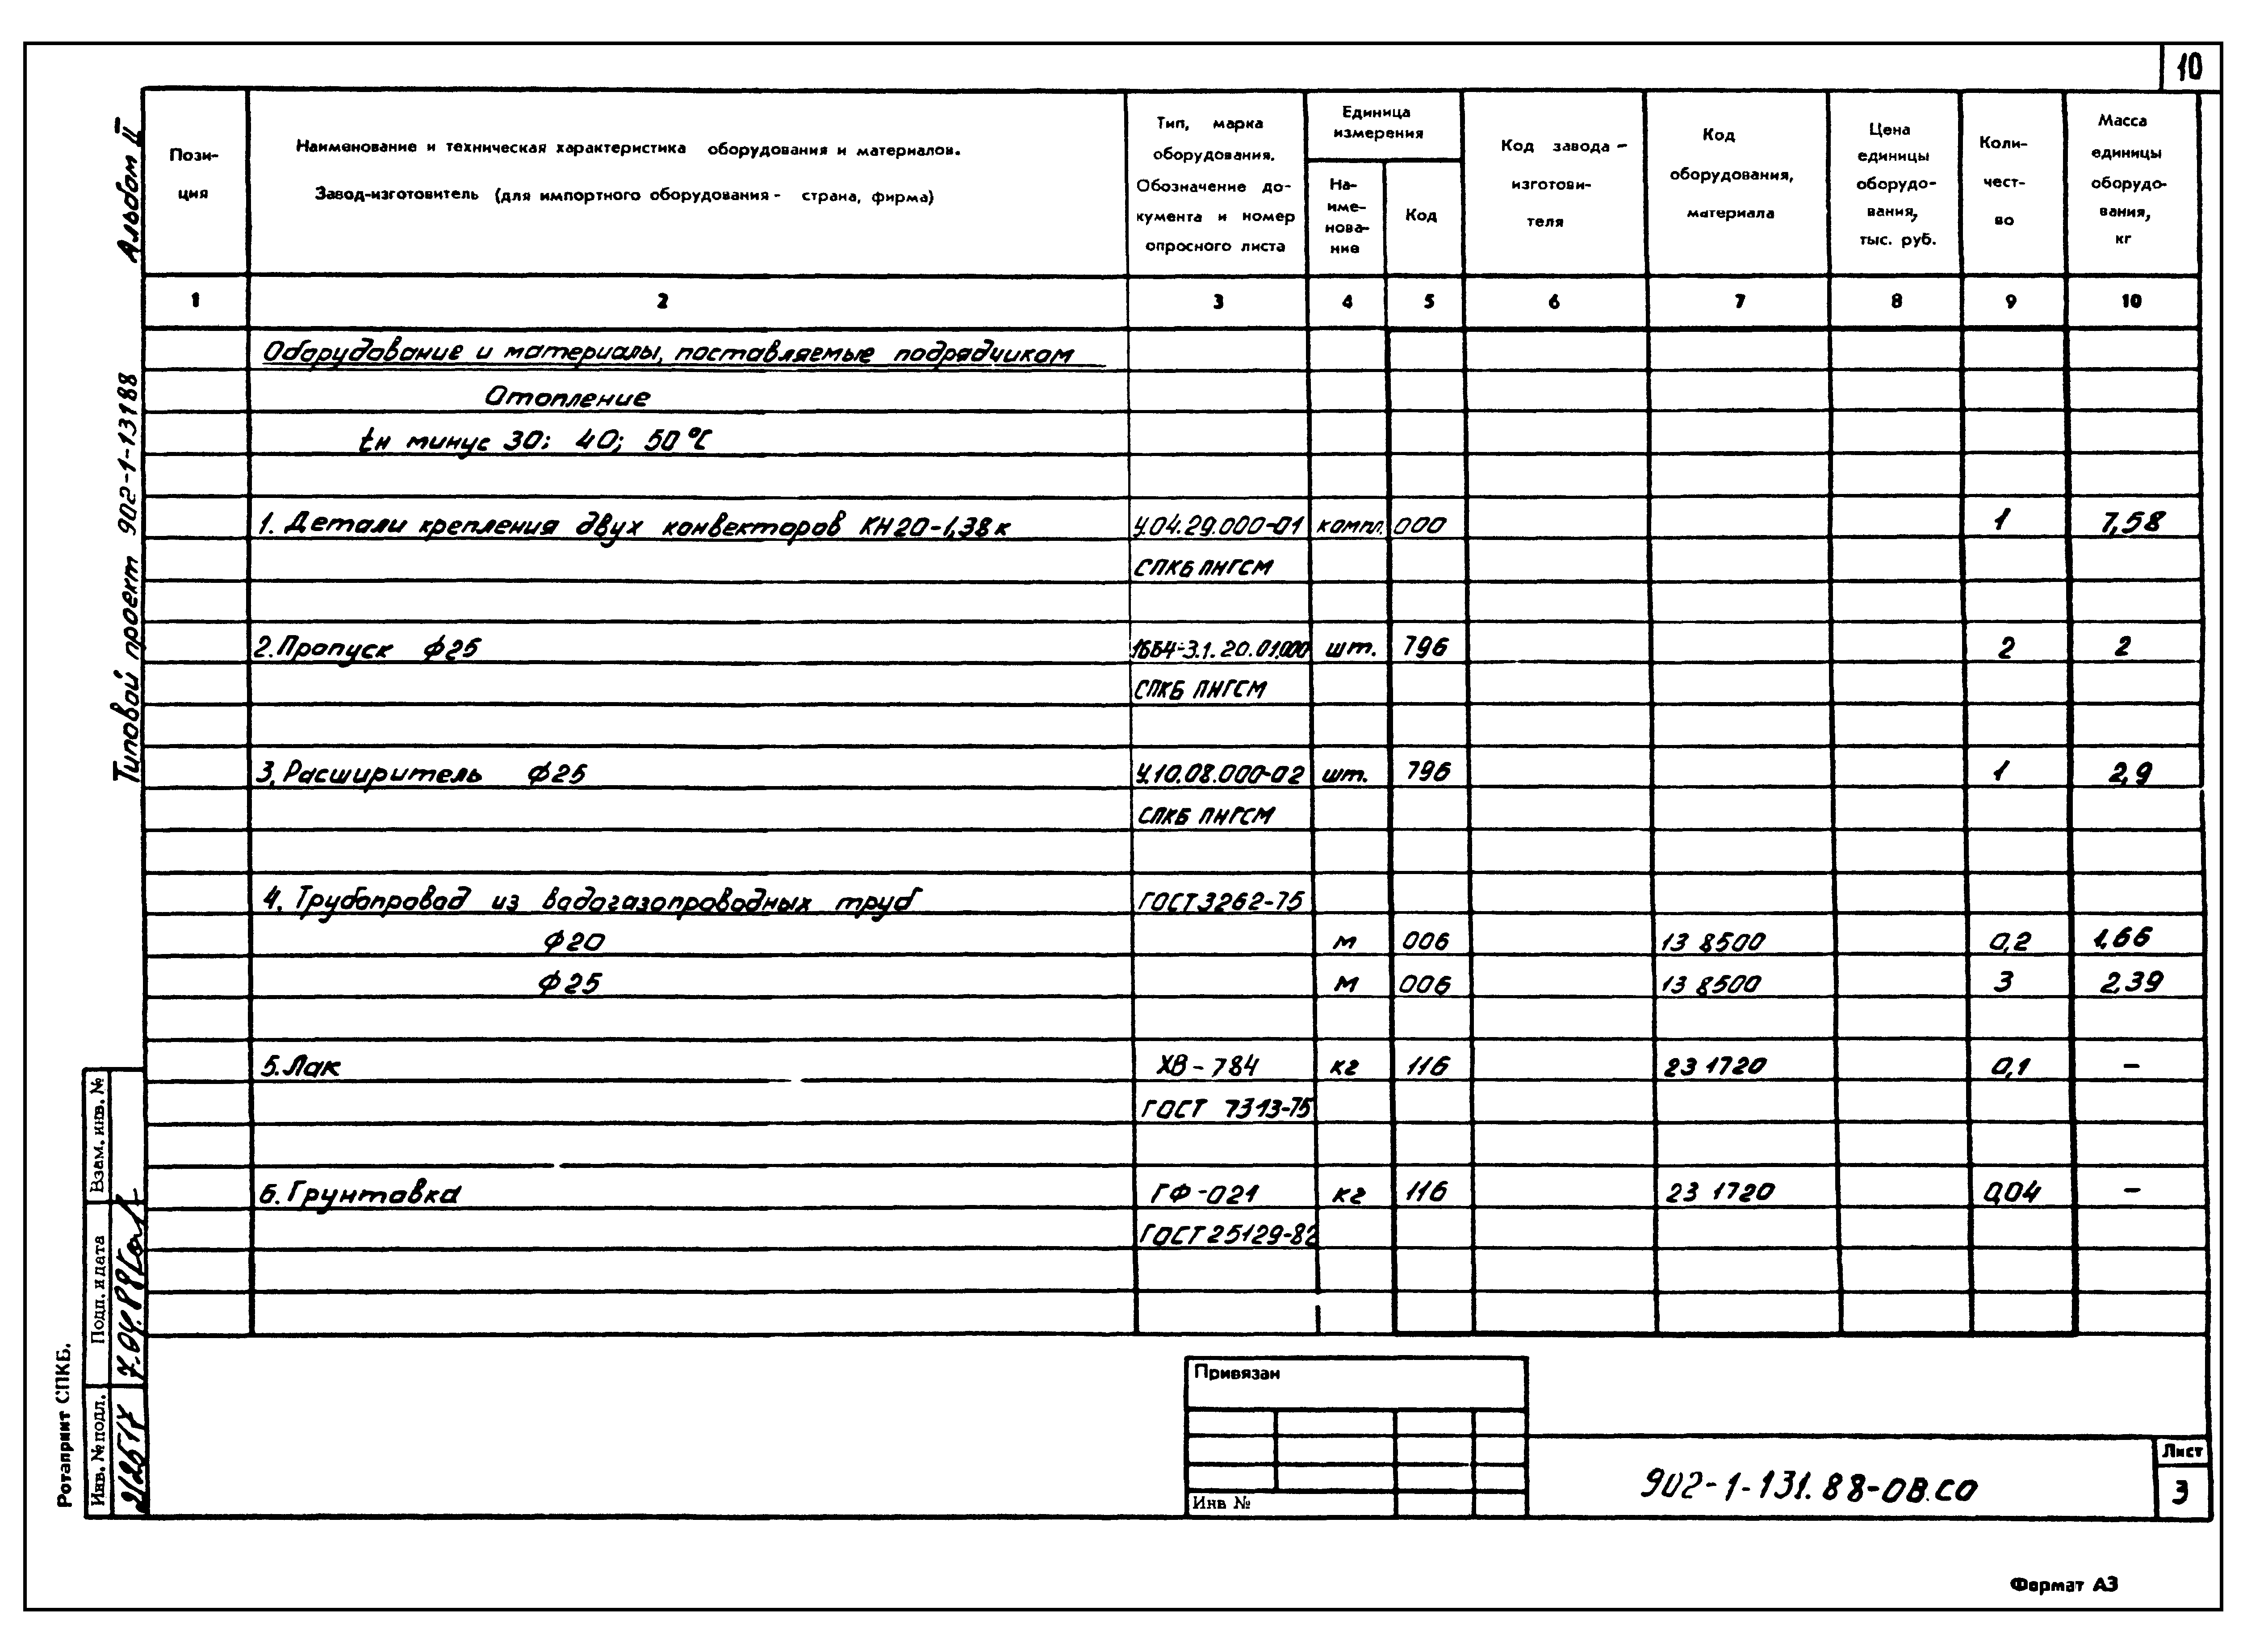 10
Альбом II
Типовой проект 902-1-131 88
Пози-
ция
Наименование и техническая характеристика оборудования и материалов.
Завод-изготовитель (для импортного оборудования - страна, фирма)
Тип, марка
оборудования.
Обозначение до-
кумента и номер
опросного листа
Единица
измерения
На-
име-
нова-
ние
Код
Код завода -
изготови-
теля
Код
оборудования,
материала
Цена
единицы
оборудо-
вания,
тыс. руб.
Коли-
чест-
во
Масса
единицы
оборудо-
вания,
кг
1 2 3 4 5 6 7 8 9 10
Оборудование и материалы, поставляемые подрядчиком
Отопление
tн минус 30; 40; 50°С
1. Детали крепления двух конвекторов КН20-1,38к У.04.29.000-01 компл. 000 1 7,58
СПКБ ПНГСМ
2. Пропуск ф25 1ББ4-3.1.20.01.000 шт. 796 2 2
СПКБ ПНГСМ
3. Расширитель ф25 У.10.08.000-02 шт. 796 1 2,9
СПКБ ПНГСМ
4. Трубопровод из водогазопроводных труб ГОСТ 3262-75
ф20 м 006 13 8500 0,2 1,66
ф25 м 006 13 8500 3 2,39
5. Лак ХВ-784 кг 116 23 1720 0,1 –
ГОСТ 7313-75
6. Грунтовка ГФ-021 кг 116 23 1720 0,04 –
ГОСТ 25129-82
Взам. инв. №
Подп. и дата
7.04.88
Инв. № подл.
Ротапринт СПКБ.
Привязан
Инв №
902-1-131.88-ОВ.СО
Лист
3
Формат А3